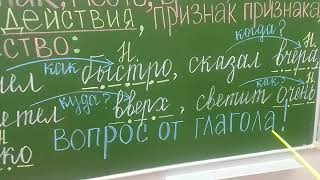 действия, признак признака
ство:
Н. когда? Н.
как быстро, сказал вчера,
Н. как? Н.
куда? вверх, светит очень
ко вопрос от глагола!